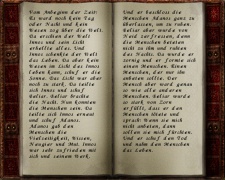 Vom Anbeginn der Zeit:
Es ward noch kein Tag
oder Nacht und kein
Wesen zog über die Welt.
Da erschien der Welt
Innos und sein Licht
erhellte alles. Und
Innos schenkte der Welt
das Leben. Da aber kein
Wesen im Licht des Innos
leben kann, schuf er die
Sonne. Das Licht war aber
noch zu stark. Da teilte
sich Innos und schuf
Beliar. Beliar brachte
die Nacht. Nun konnten
die Menschen sein. Da
teilte sich Innos erneut
und schuf Adanos.
Adanos gab den
Menschen die
Vielseitigkeit, Wissen,
Neugier und Mut. Innos
war sehr zufrieden mit
sich und seinem Werk.
Und er beschloss die
Menschen Adanos ganz zu
überlassen, um zu ruhen.
Beliar aber wurde von
Neid zerfressen, denn
die Menschen beteten
nicht zu ihm und ruhten
des Nachts. Da wurde er
zornig und er formte sich
einen Menschen. Einen
Menschen, der nur ihn
anbeten sollte. Der
Mensch aber war genau
so wie alle anderen
Menschen. Beliar wurde
so stark von Zorn
erfüllt, dass er den
Menschen tötete und
sprach: Wenn sie mich
nicht anbeten, dann
sollen sie mich fürchten.
Und er schuf den Tod
und nahm den Menschen
das Leben.